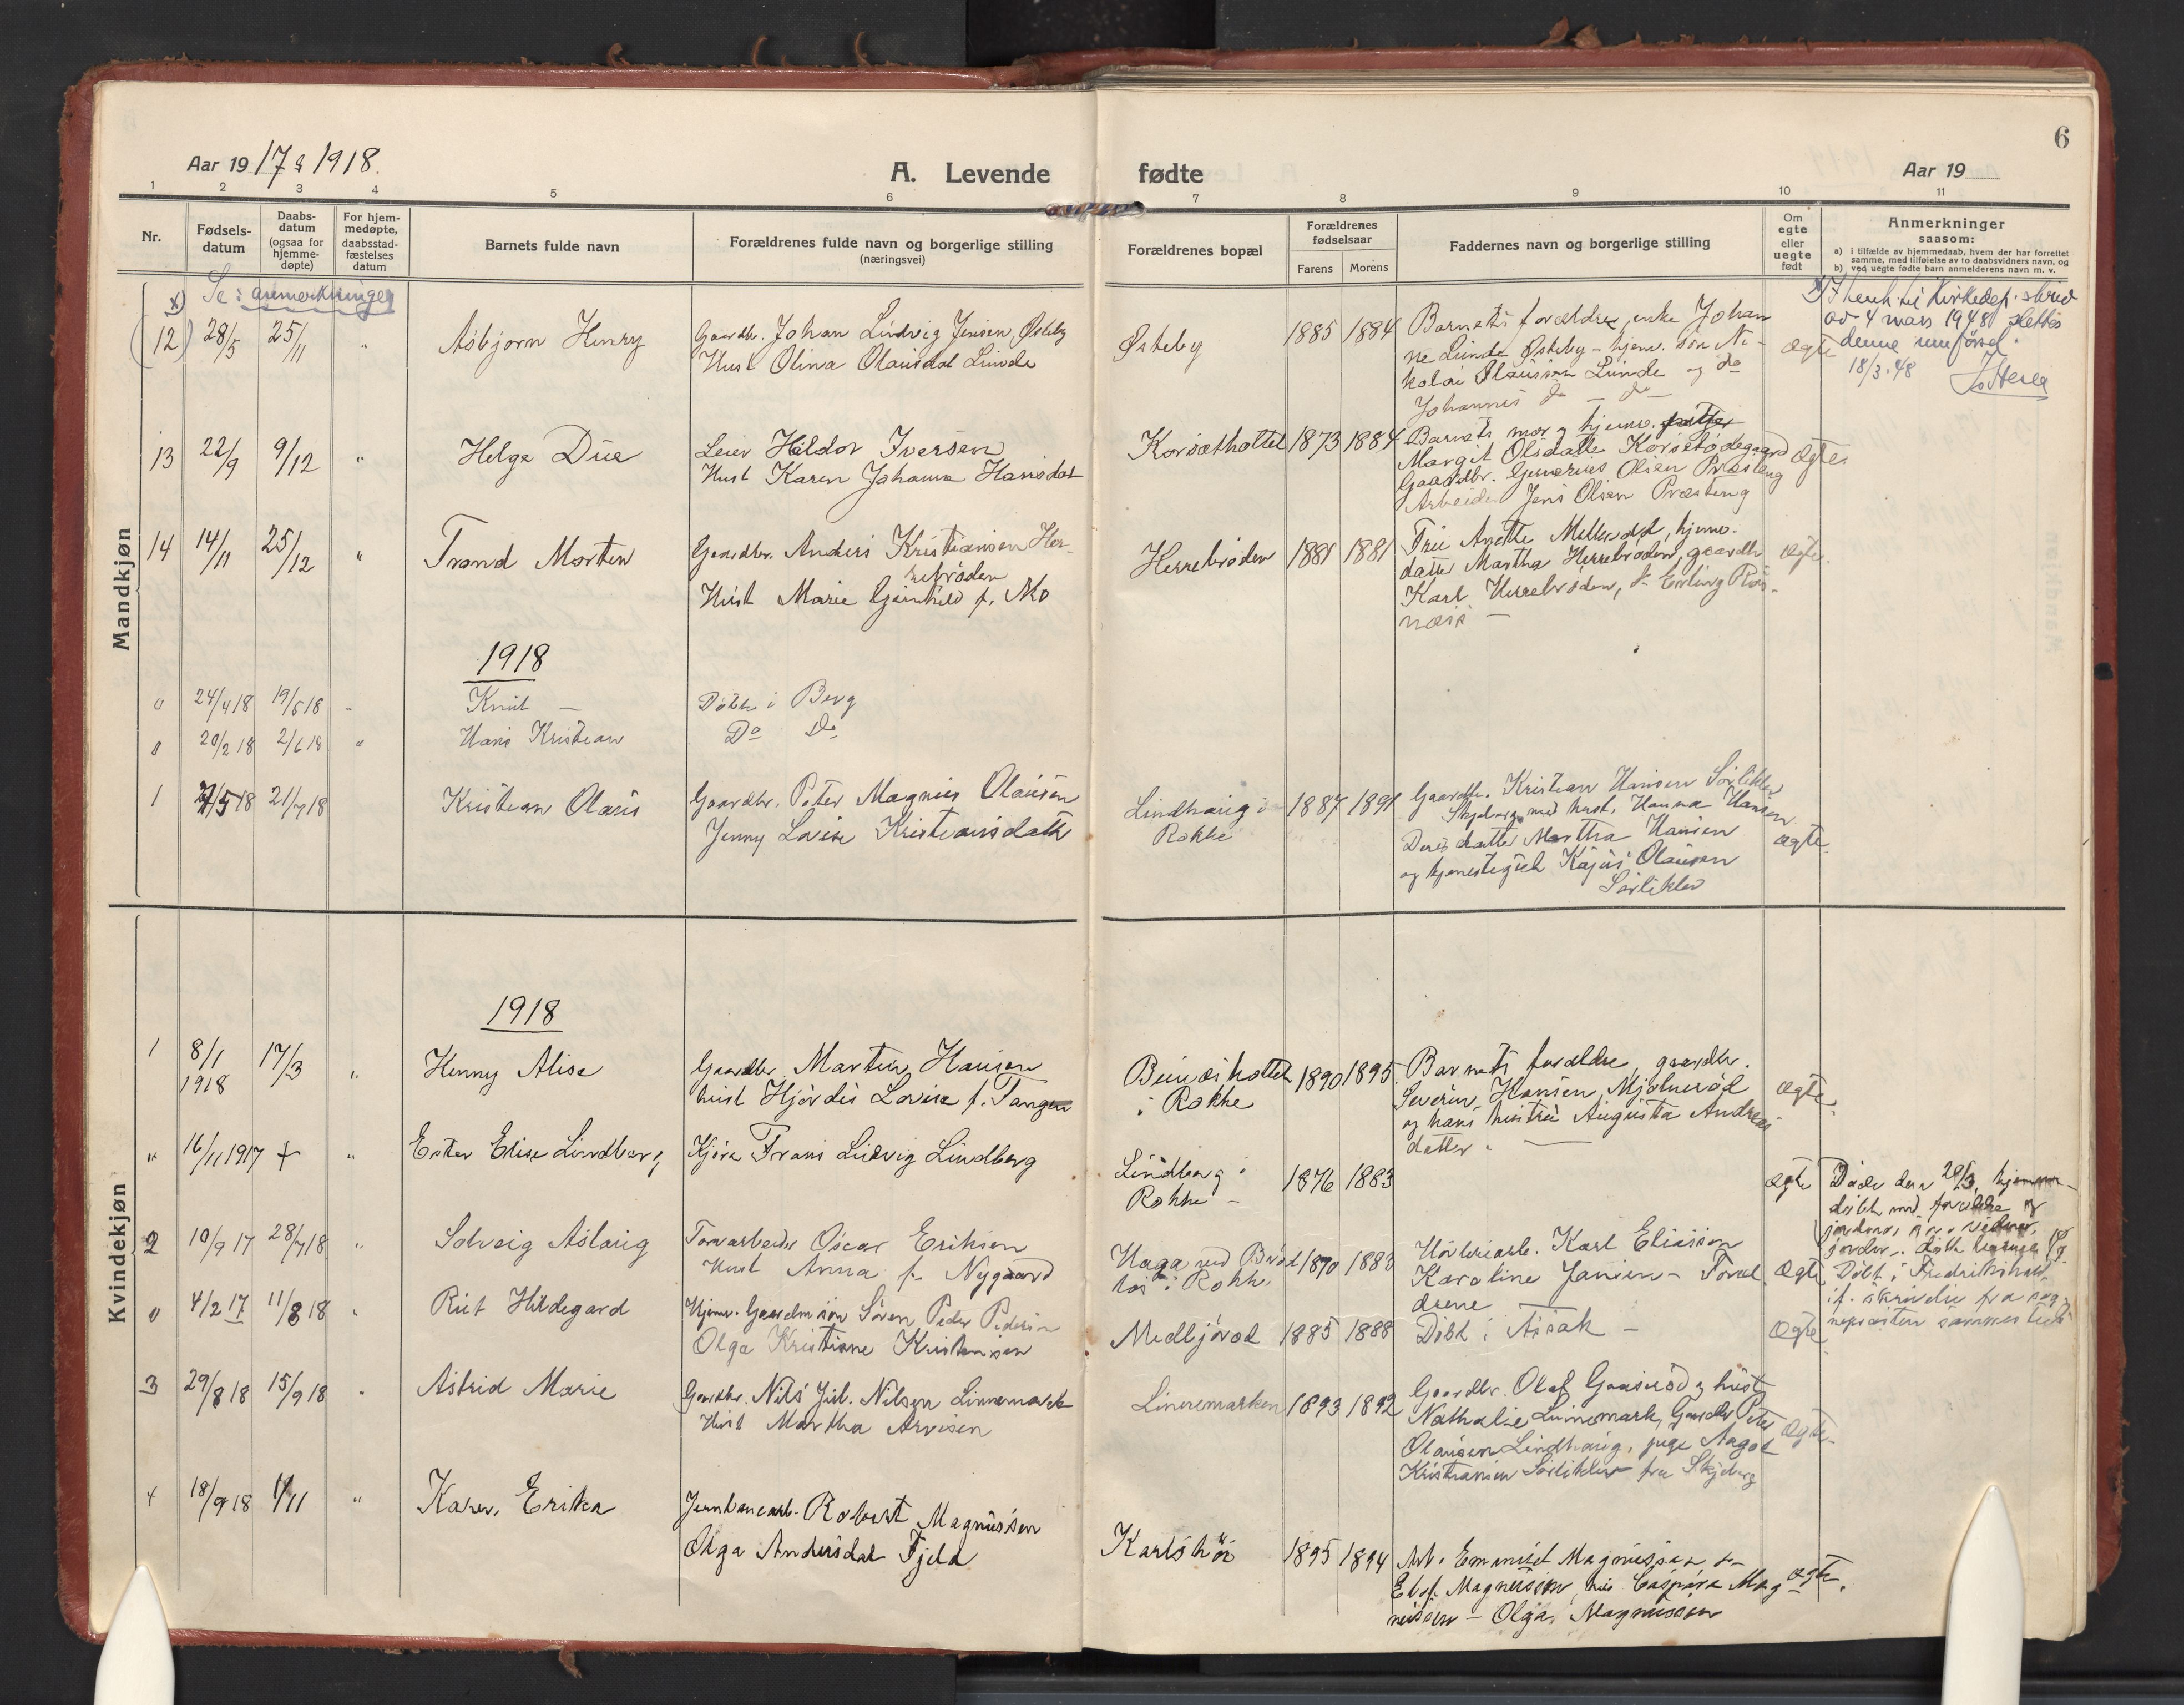 6
Aar 1917 & 1918.
A. Levende fødte
Aar 19
1 2 3 4 5 6 7 8 9 10 11
Nr.
Fødsels-
datum
Daabs-
datum
(ogsaa for
hjemme-
døpte)
For hjem-
medøpte,
daabsstad-
fæstelses
datum
Barnets fulde navn
Forældrenes fulde navn og borgerlige stilling
(næringsvei)
Forældrenes bopæl
Forældrenes
fødselsaar
Farens Morens
Faddernes navn og borgerlige stilling
Om
egte
eller
uegte
født
Anmerkninger
saasom:
a) i tilfælde av hjemmedaab, hvem der har forrettet
samme, med tilføielse av to daabsvidners navn, og
b) ved uegte fødte barn anmelderens navn m. v.
Mandkjøn
x) Se: anmerkninger
(12) 28/5 25/11 " Asbjørn Henry
Gaardbr. Johan Ludvig Jensen Østeby
Hust Olina Olausdat Lunde
Østeby 1885 1884
Barnets forældre, enke Johan
ne Lunde Østeby - hjemv. søn Ni-
kolai Olaussen Lunde og do
Johannes do - do
ægte
av 4 mars 1948 slettes
denne innførsel.
18/3.48
13 22/9 9/12 " Helge Due
Leier Haldor Iversen
Hust Karen Johanne Hansdat
Korsæthottet 1873 1884
Barnets mor, hjemv.
Margit Olsdatte Korsetødegaard
Gaardbr. Olsen Præsteng
Arbeider Jens Olsen Præsteng
ægte.
14 14/11 25/12 " Trond Morten
Gaardbr. Anders Kristiansen Her-
rebrøden
Hust Marie Gunhild f. Mo
Herrebrøden 1881 1881
Fru Anette Møllerød, hjemv.
datter Martha Herrebrøden, gaardbr
Karl Herrebrøden, do Erling Røs-
næss -
ægte.
1918
0 24/4 18 19/5 18 - Knut - Døbt i Berg
0 20/2 18 2/6 18 " Hans Kristian Do Do
1 7/5 18 21/7 18 Kristian Olaus
Gaardbr. Peter Magnus Olausen
Jenny Lovise Kristiansdatte
Lindhaug i
Rokke
1887 1891
Gaardbr. Kristian Hansen Sørlikler
Skjeberg med hust, Hanna Hansen
Deres datter Martha Hansen
og tjenestegut Kajus Olausen
Sørlikler
ægte.
Kvindekjøn
1918
1 8/1 1918 17/3 " Henny Alise
Gaardbr. Martin Hansen
hust Hjørdis Lovise f. Tangen
i Rokke
1890 1895
Barnets forældre, gaardbr.
Severin Hansen Mjølnerød
og hans hustru Augusta Andreas
datter. -
ægte.
" 16/11 1917 + " Ester Elise Lindberg
Kjøre Frans Ludvig Lindberg
Lindberg i
Rokke -
1876 1883
ægte
Døde den 20/3, hjemme-
døbt med forældre og
2 10/9 17 28/7 18 " Solveig Aslaug
Torvarbeider Oscar Eriksen
Hust Anna f. Nygaard
Haga ved Brød
løs i Rokke
1870 1883
Karl Eliassen
Karoline Jansen - Foræl
drene
ægte
Døbt i Fredrikshald
if. skrivelse fra sog-
nepresten sammesteds
0 4/2 17 11/8 18 " Rut Hildegard
Hjemv. Gaardm. søn Søren Peder Pedersen
Olga Kristiane Kristensen
Medbjørød 1885 1888
Døbt i Aisak -
ægte
3 29/8 18 15/9 18 " Astrid Marie
Gaardbr. Nils Jul. Nilsen Linnemark
Hust Martha Arvesen
Linnemarken 1893 1892
Gaardbr. Olaf Gaaserød og hust
Nathalie Linnemark, Gaardbr Peter
Olausen Lindhaug, pige Aagot
Kristiansen Sørlikler fra Skjeberg
ægte.
4 18/9 18 1/11 " Karen Erika
Jernbanearb. Robert Magnussen
Olga Andersdat Fjeld
Karlshøi 1895 1894
Arb. Emanuel Magnussen &
Elof Magnussen, fru Caspara Mag
nussen - Olga Magnussen
ægte.